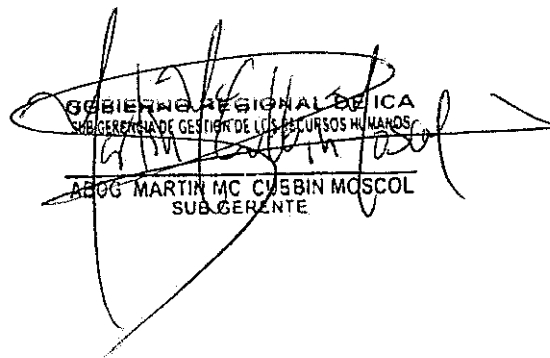 GOBIERNO REGIONAL DE ICA
SUBGERENCIA DE GESTION DE LOS RECURSOS HUMANOS
ABOG MARTIN MC CUBBIN MOSCOL
SUB GERENTE